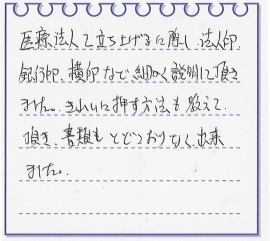 医療法人て立ち上げるに際し、法人印、
銀行印、横印など、細かく説明して頂き
ました。きれいに押す方法も教えて
頂き、書類もとどこおりなく、出来
ました。